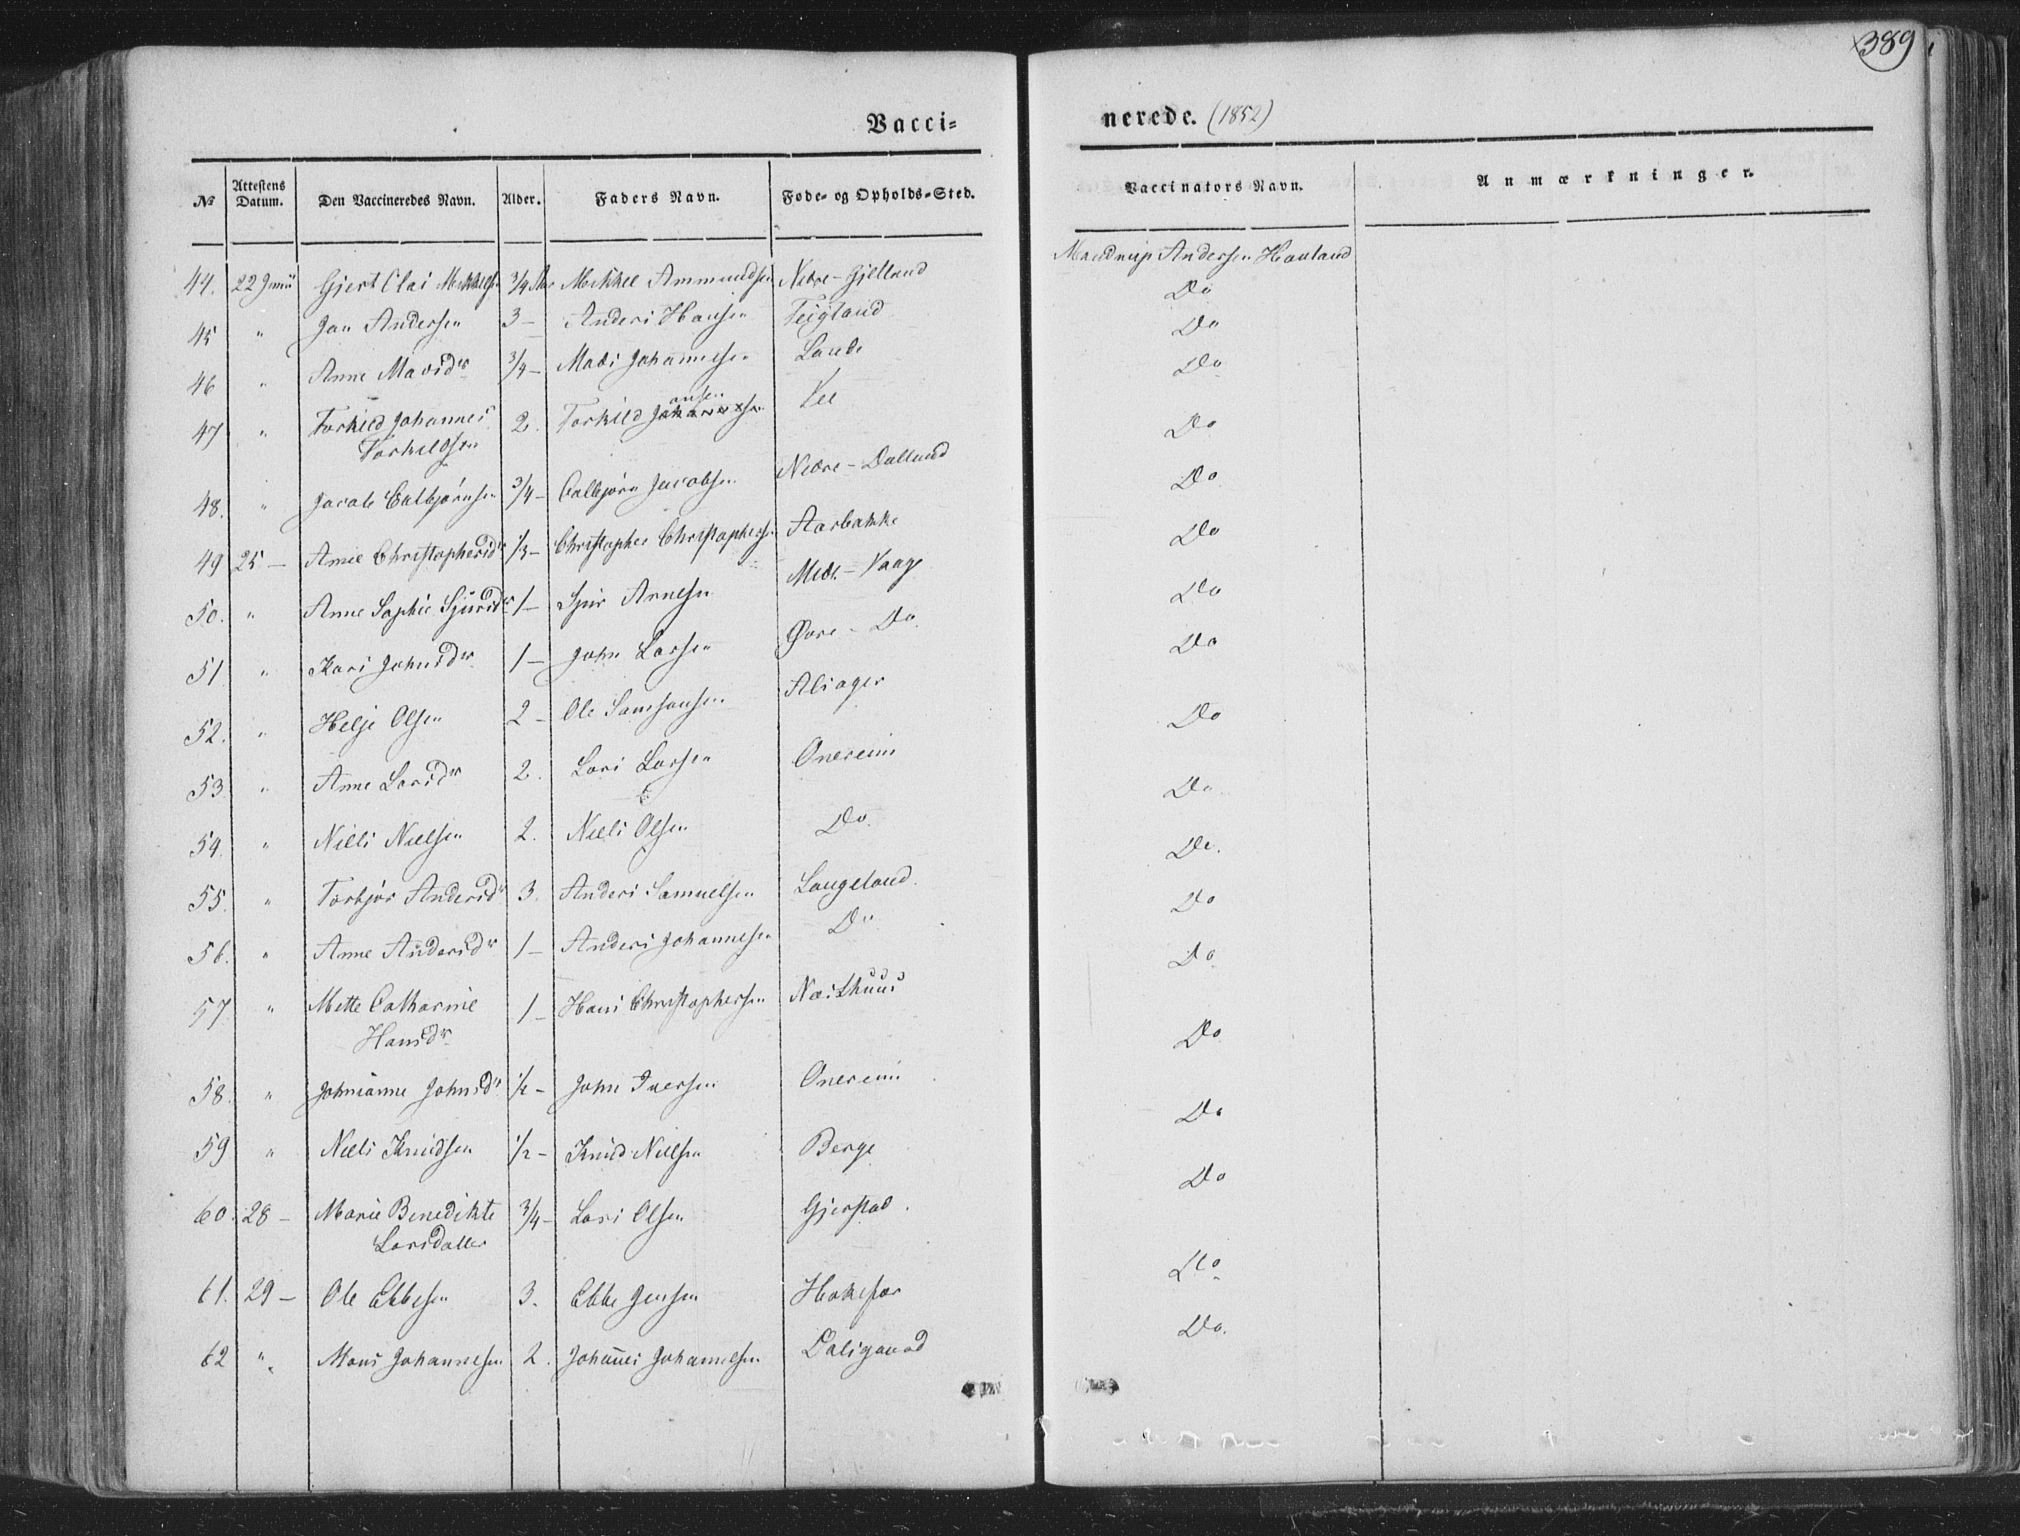 389
Vacci-
nerede. (1852)
№ Attestens Datum. Den Vaccineredes Navn. Alder. Faders Navn. Føde- og Opholds-Sted. Vaccinators Navn. Anmærkninger.
44. 22 Junii Gjert Olai Mikkels. 3/4 Mikkel Ammundsen Nedre-Gjelland Mandrup Andersen Houland
45 " Jan Andersen 3 – Anders Hansen Teigland Do
46 " Anne Madsdr 3/4 – Mads Johannesen Lande Do
47 " Torkild Johannes 2. Torkild Johansen Vee Do
Torkildsen
48. " Jacob Eulbjørnsen 3/4 – Eulbjørn Jacobsen Nedre-Dalland Do
49 25 – Anne Christophersdr 1/3 – Christopher Christophersen Aarbakke Do
50. " Anne Sophie Sjursdr 1 – Sjur Arnesen Medl.-Vaage Do
51 " Kari Johnsdr 1 – John Larsen Øvre – Do. Do
52. " Helje Olsen 2 – Ole Samsonsen Alsager Do
53 " Anne Larsdr 2. Lars Larsen Onereim Do
54. " Niels Nielsen 2. Niels Olsen Do. Do
55. " Torbjør Andersdr 3. Anders Samuelsen Langeland. Do.
56. " Anne Andersdr 1 – Anders Johannesen Do Do
57 " Mette Catharine 1 – Hans Christophersen Næsthuus Do
Hansdr
58. " Johnianne Johnsdr 1/2 – John Iversen Onereim Do
59 " Niels Knudsen 1/2 – Knud Nielsen Berge Do
60. 28 – Marie Benedikte 3/4 – Lars Olsen Gjerstad. Do
Larsdatter
61. 29 – Ole Ebbesen 3. Ebbe Jensen Do
62 " Mons Johannesen 2. Johannes Johannesen Dalsgaard Do.